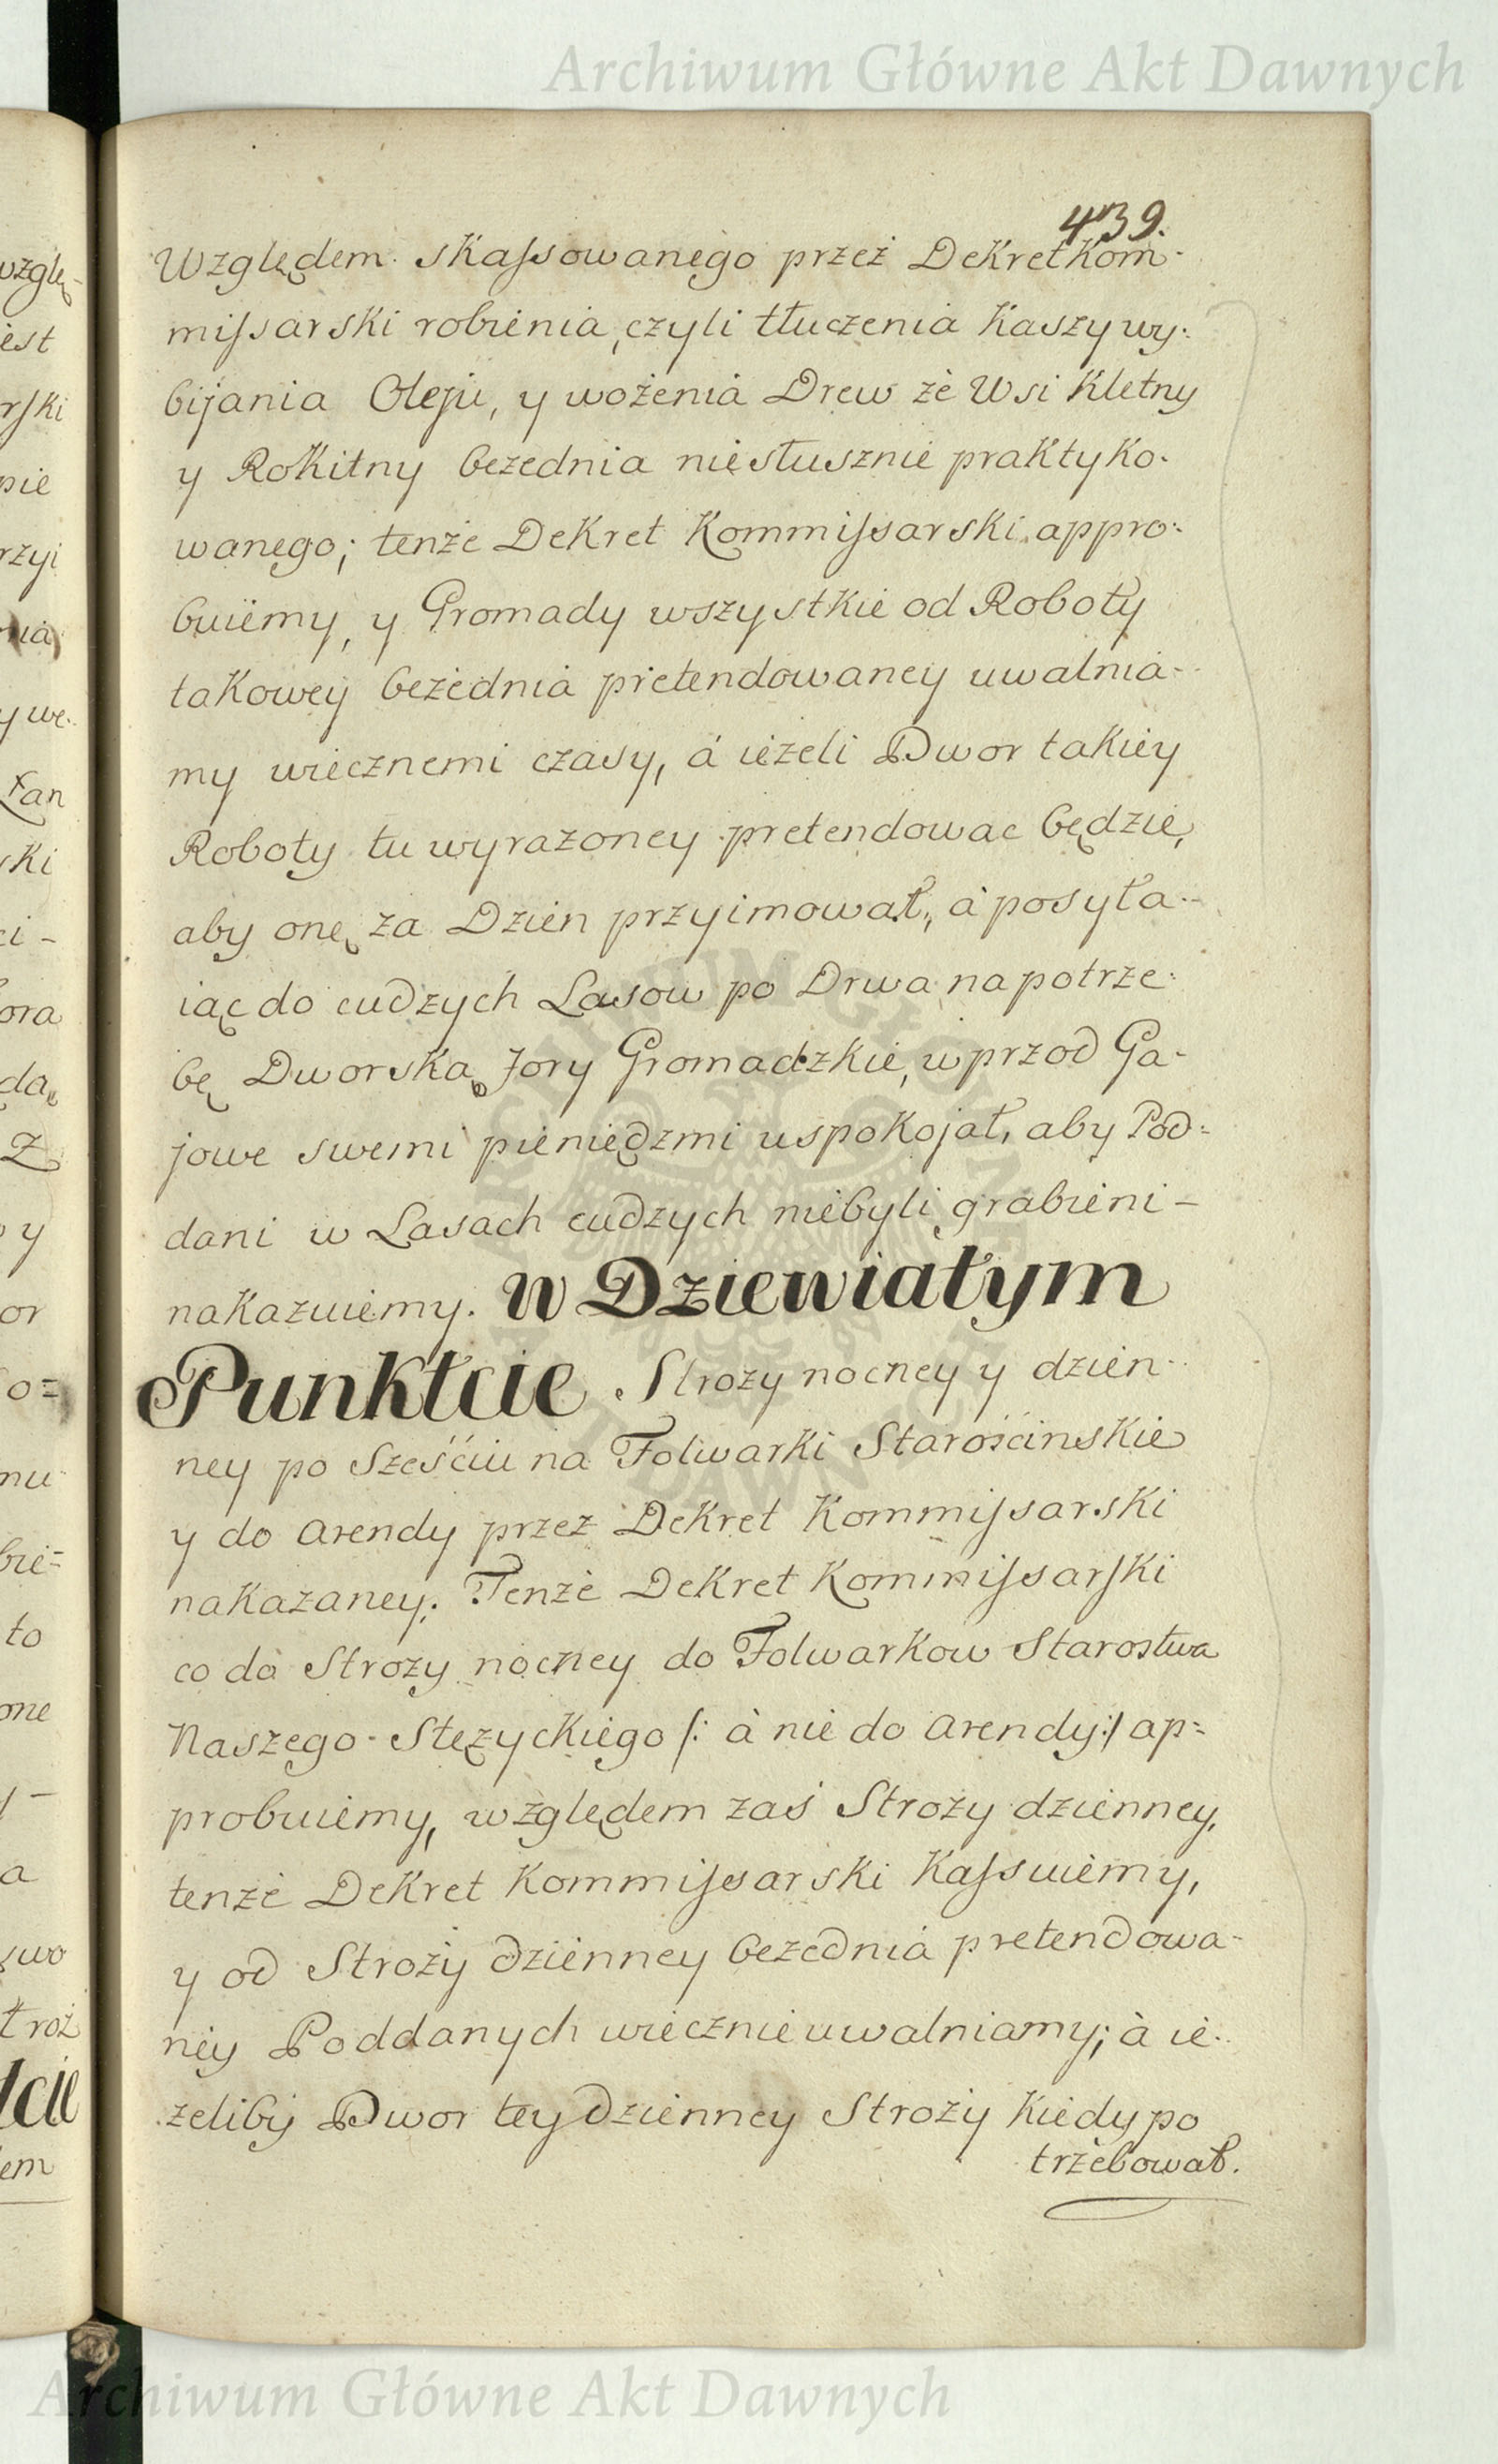 Archiwum Główne Akt Dawnych
439.
Względem skassowanego przeż Dekret Kom-
missarski robienia, czyli tłuczenia Kaszy wy-
bijania Oleju, y wożenia Drew że Wsi Kletny
y Rokitny bezednia niesłusznie praktyko-
wanego; tenże Dekret Kommissarski appro-
buiemy, y Gromady wszystkie od Roboty
takowey bezednia pretendowaney uwalnia-
my wiecznemi czasy, á ieżeli Dwor takiey
Roboty tu wyrazoney pretendowac będzie,
aby onę za Dzien przyimował, à posyła-
iąc do cudzych Lasow po Drwa na potrze-
bę Dworską Jory Gromadzkie, wprzod Ga-
jowe swemi pieniędzmi uspokojał, aby Pod-
dani w Lasach cudzych niebyli grabieni -
nakazuiemy. W Dziewiątym
Punktcie Strozy nocney y dzien-
ney po Sześciu na Folwarki Starościnskie
y do arendy przez Dekret Kommissarski
nakazaney. Tenże Dekret Kommissarski
co do Strozy nocney do Folwarkow Starostwa
Naszego Stęzyckiego /: à nie do arendy:/ ap-
probuiemy, względem zaś Strozy dzienney,
tenże Dekret Kommissarski Kassuiemy,
y od Stroży dzienney bezednia pretendowa-
ney Poddanych wiecznie uwalniamy; à ie-
zeliby Dwor tey dzienney Stroży Kiedy po
trzebował.
Archiwum Główne Akt Dawnych